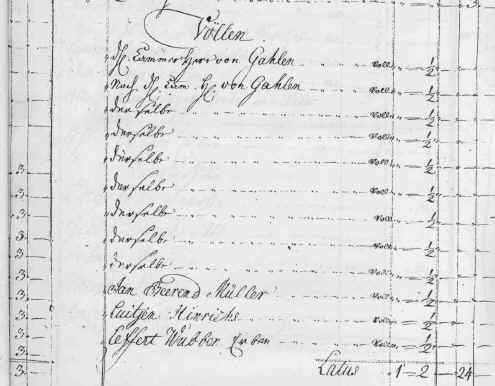 Völlen
H. Cammer Herr von Gahlen " " " voll " — ½
Nach. H. Cam. H. von Gahlen voll " — ½
derselbe voll " — ½
derselbe voll " — ½
derselbe voll " — ½
3 derselbe voll — ½
3 derselbe voll ½
3 derselbe voll " — ½
3 derselbe voll " — ½
3 Jan Beerend Müller voll " — ½
3 Luitjen Hinrichs voll " — ½
3 Leffert Wubben Erben voll " — ½
3 Latus 1 — 2 — 24